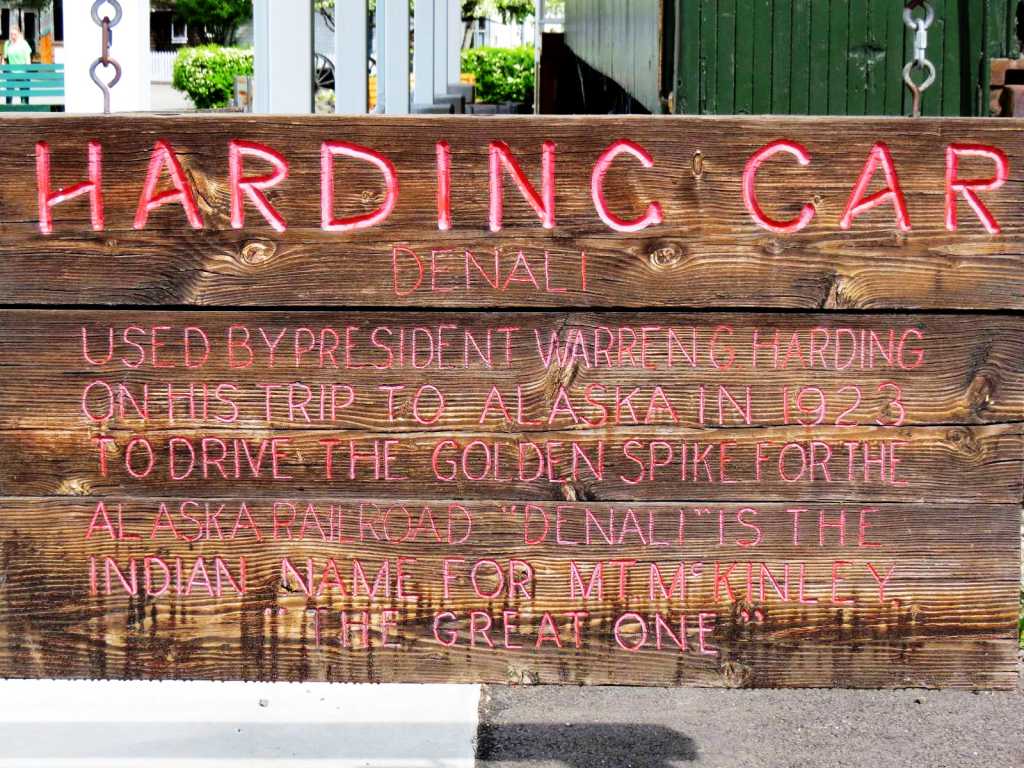 HARDING CAR
DENALI
USED BY PRESIDENT WARREN G HARDING
ON HIS TRIP TO ALASKA IN 1923
TO DRIVE THE GOLDEN SPIKE FOR THE
ALASKA RAILROAD "DENALI" IS THE
INDIAN NAME FOR MT. McKINLEY,
"THE GREAT ONE"